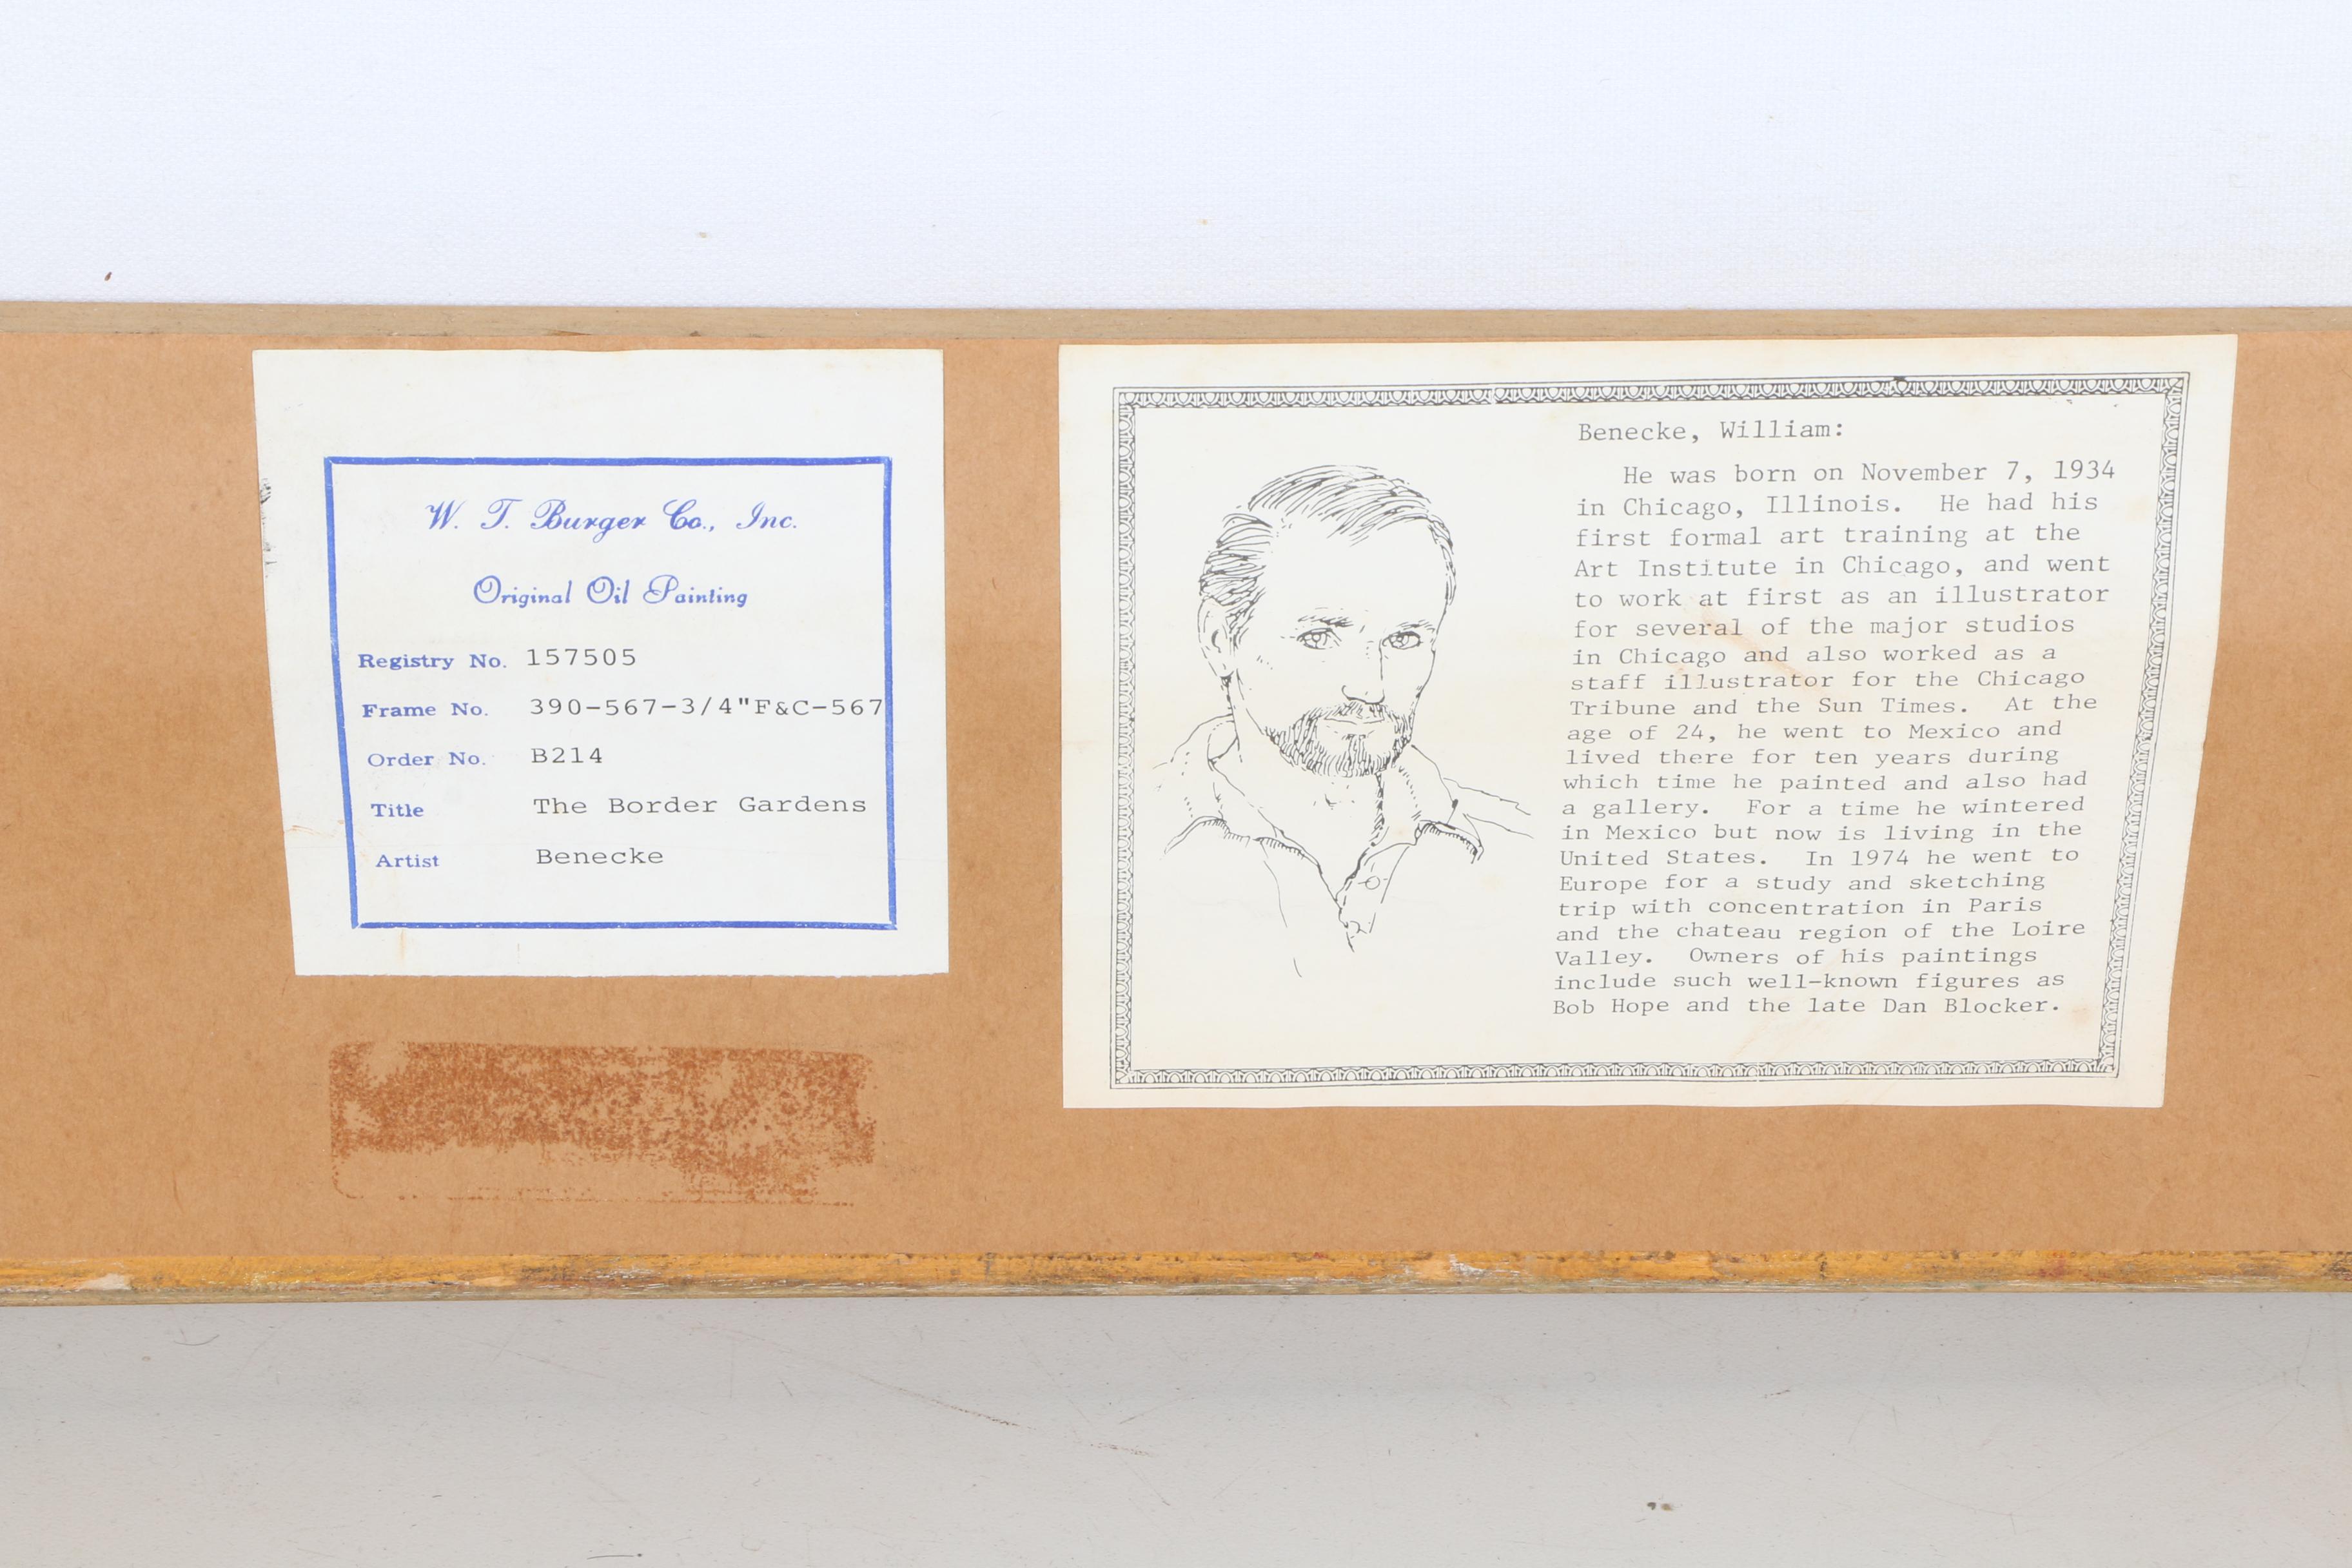 W. T. Burger Co., Inc.
Original Oil Painting
Registry No. 157505
Frame No. 390-567-3/4"F&C-567
Order No. B214
Title The Border Gardens
Artist Benecke
Benecke, William:
He was born on November 7, 1934
in Chicago, Illinois. He had his
first formal art training at the
Art Institute in Chicago, and went
to work at first as an illustrator
for several of the major studios
in Chicago and also worked as a
staff illustrator for the Chicago
Tribune and the Sun Times. At the
age of 24, he went to Mexico and
lived there for ten years during
which time he painted and also had
a gallery. For a time he wintered
in Mexico but now is living in the
United States. In 1974 he went to
Europe for a study and sketching
trip with concentration in Paris
and the chateau region of the Loire
Valley. Owners of his paintings
include such well-known figures as
Bob Hope and the late Dan Blocker.